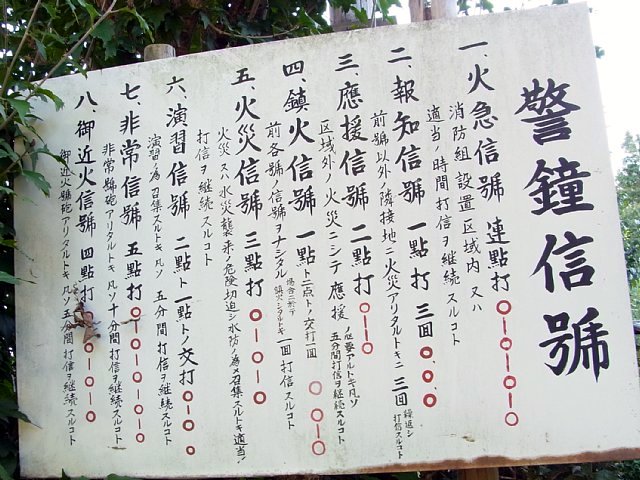 警鐘信號
一、火急信號 連點打 ○ー○ー○ー○
消防組設置区域内 又ハ
適当ノ時間打信ヲ継続スルコト
二、報知信號 一點打 三回 ○.○.○
前號以外ノ隣接地ニ火災アリタルトキニ 三回 繰返シ打信スルコト
三、應援信號 二點打 ○ー○
区域外ノ火災ニシテ應援ノ必要アルトキ凡ソ五分間打信ヲ継続スルコト
四、鎮火信號 一點ト二点トノ交打一回 ○ ○ー○
前各號ノ信號ヲナシタル場合ニ於テ鎮火シタルトキ一回打信スルコト
五、火災信號 三點打 ○ー○ー○
火災又ハ水災襲来ノ危険切迫シ水防ノ為メ召集スルトキ適当ノ
打信ヲ継続スルコト
六、演習信號 二點ト一點トノ交打 ○ー○ ○
演習ノ為召集スルトキ凡ソ 五分間打信ヲ継続スルコト
七、非常信號 五點打 ○ー○ー○ー○ー○
非常號砲アリタルトキ凡ソ十分間打信ヲ継続スルコト
八、御近火信號 四點打 ○ー○ー○ー○
御近火號砲アリタルトキ凡ソ五分間打信ヲ継続スルコト